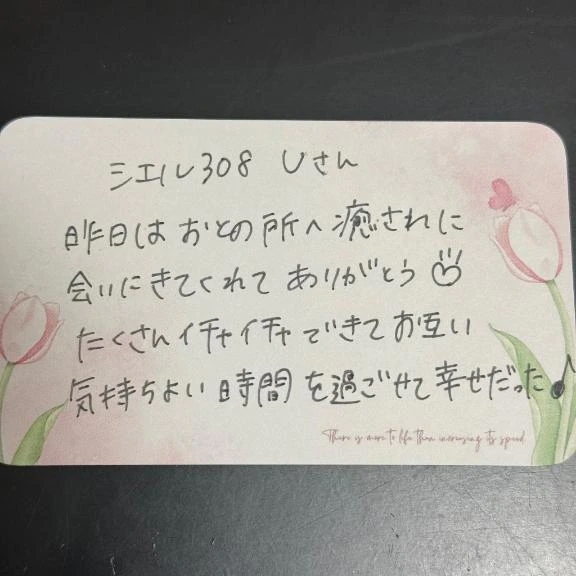 シエル308 Uさん
昨日はおとの所へ癒されに
会いにきてくれてありがとう
たくさんイチャイチャできてお互い
気持ちよい時間を過ごせて幸せだった♪
There is more to life than increasing its speed